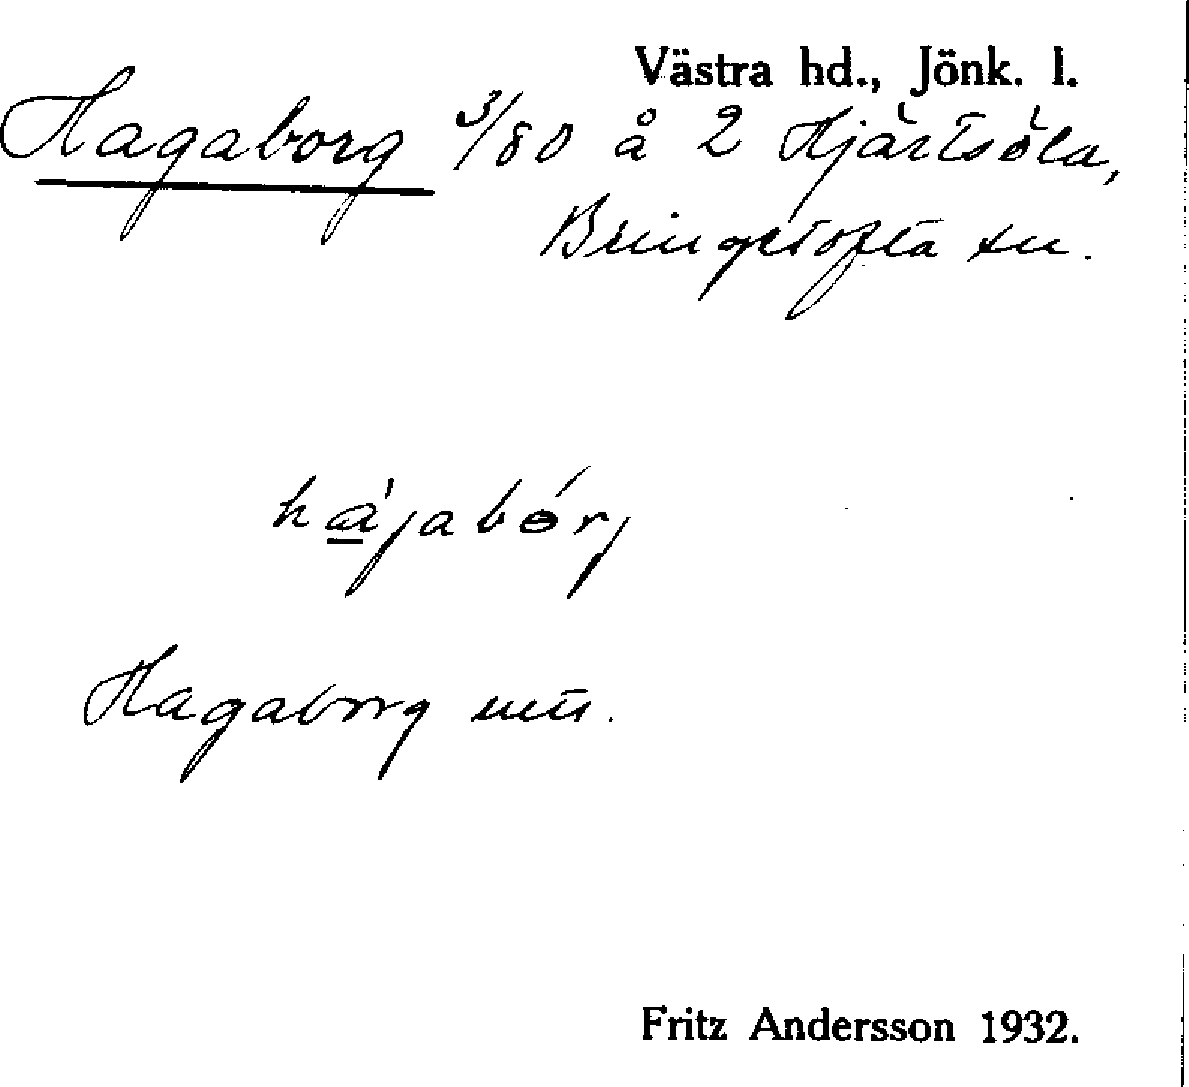 Västra hd., Jönk. l.
Hagaborg 3/80 å 2 Hjärtsöla,
Bringetofta sn.
hàjabórj
Hagaborg
Fritz Andersson 1932.